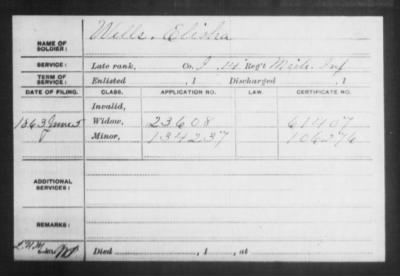 NAME OF SOLDIER: Wells, Elisha
SERVICE: Late rank, Co. I, 14 Reg't Mich. Inf
TERM OF SERVICE: Enlisted , 1 Discharged , 1
DATE OF FILING. CLASS. APPLICATION NO. LAW. CERTIFICATE NO.
Invalid,
1863 June 5 Widow, 23608 61407
Minor, 134237 106276
ADDITIONAL SERVICES:
REMARKS:
Died , 1 , at